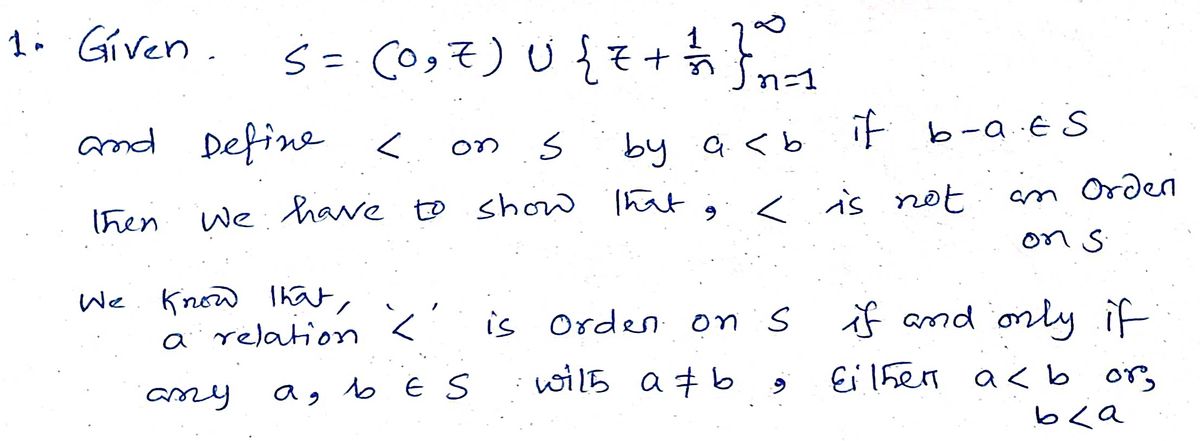 1. Given. S = (0,7) U { 7 + 1/n }∞n=1
and Define < on S by a < b if b-a ∈ S
Then we have to show that, < is not an Order
on S.
We Know that,
a relation '<' is Order on S if and only if
any a, b ∈ S with a ≠ b, Either a < b or,
b < a